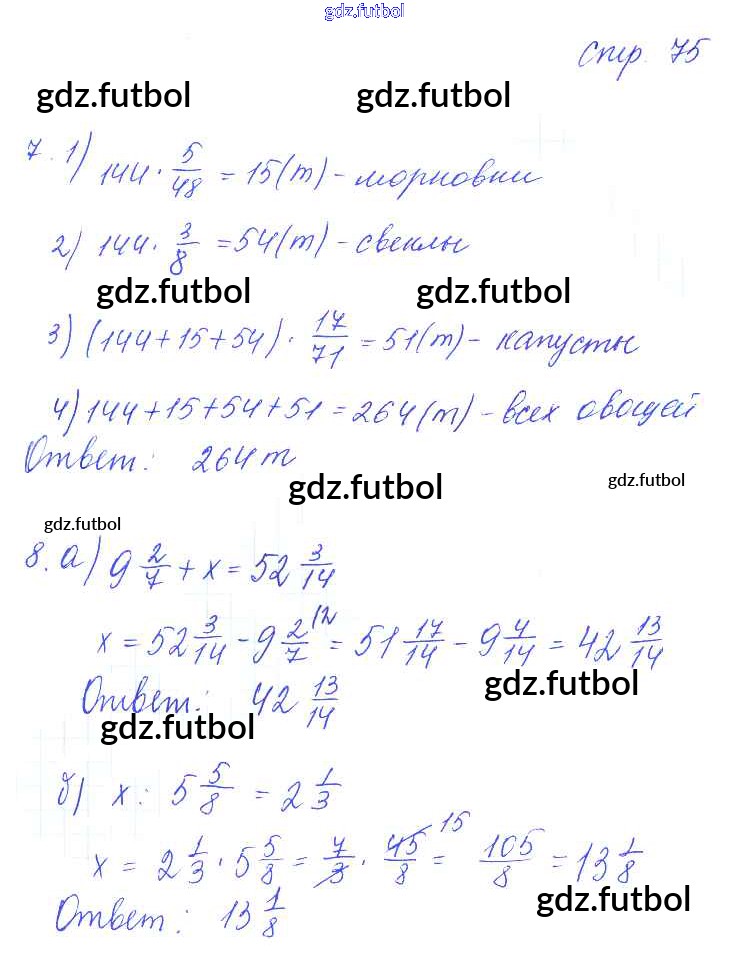 gdz.futbol
Стр. 75
gdz.futbol gdz.futbol
7. 1) 144 · 5/48 = 15(т) - морковки
2) 144 · 3/8 = 54(т) - свеклы
gdz.futbol gdz.futbol
3) (144+15+54) · 17/71 = 51(т) - капусты
4) 144+15+54+51 = 264(т) - всех овощей
Ответ: 264 т
gdz.futbol gdz.futbol
gdz.futbol
8. а) 9 2/7 + x = 52 3/14
x = 52 3/14 - 9 2/7 /2 = 51 17/14 - 9 4/14 = 42 13/14
Ответ: 42 13/14
gdz.futbol
gdz.futbol
б) x : 5 5/8 = 2 1/3
x = 2 1/3 · 5 5/8 = 7/3 · 45/8 15 = 105/8 = 13 1/8
gdz.futbol
Ответ: 13 1/8